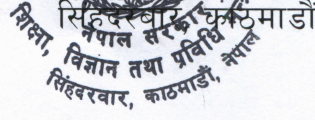 सिंहदरबार, काठमाडौं
नेपाल सरकार
शिक्षा, विज्ञान तथा प्रविधि
सिंहदरवार, काठमाडौँ, नेपाल